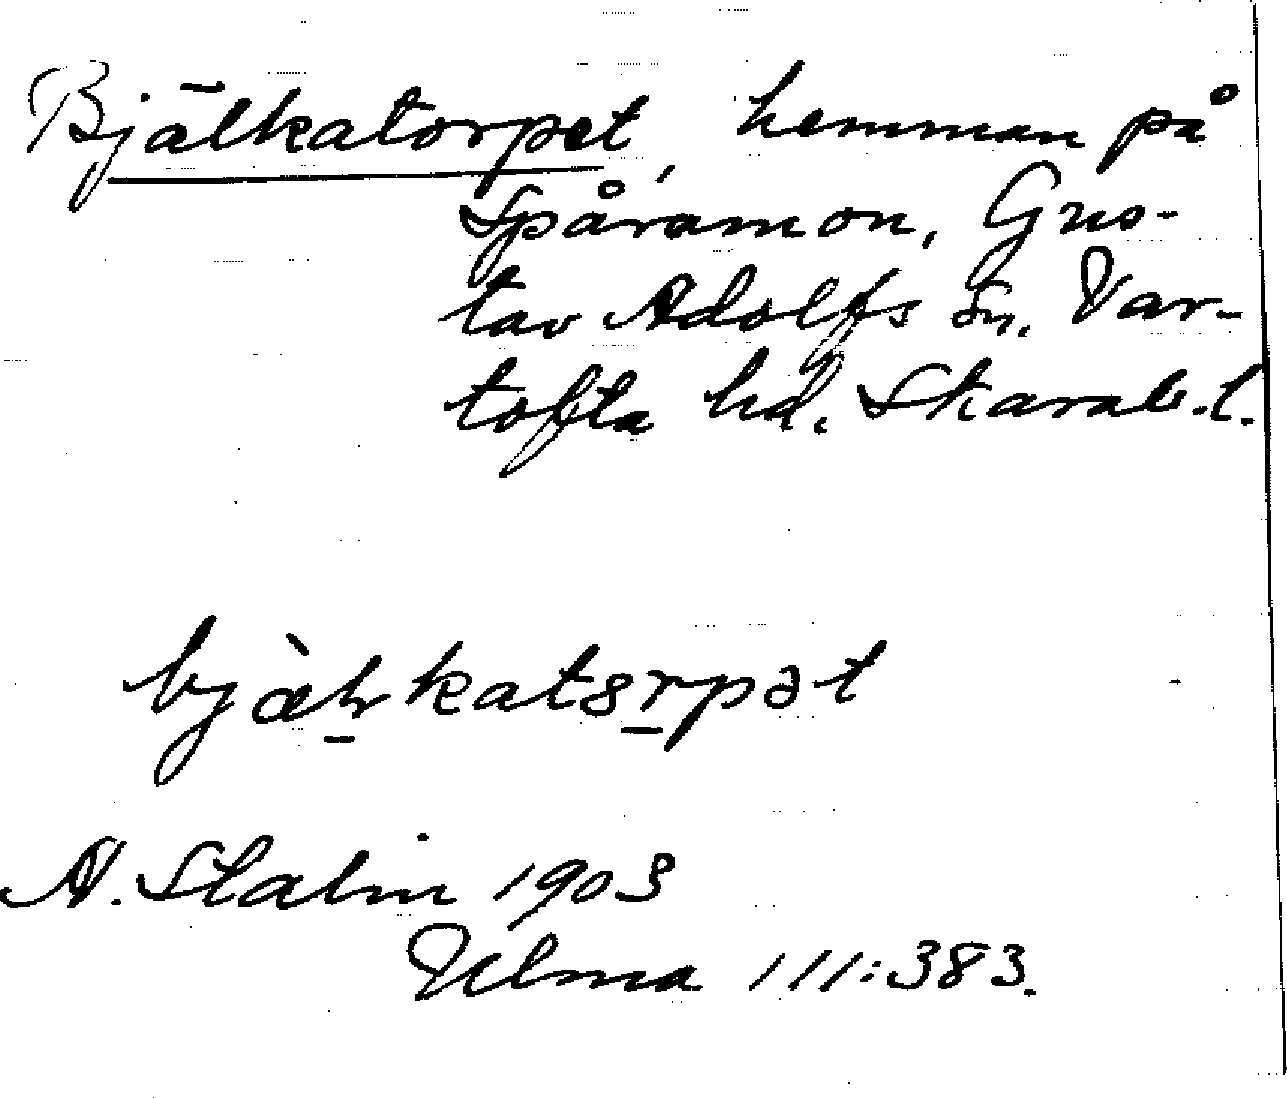 Bjälkatorpet, hemman på
Spåramon, Gus-
tav Adolfs sn. Var-
tofta hd. Skarab. l.
A. Stalin 1903
Ulma 111:383.